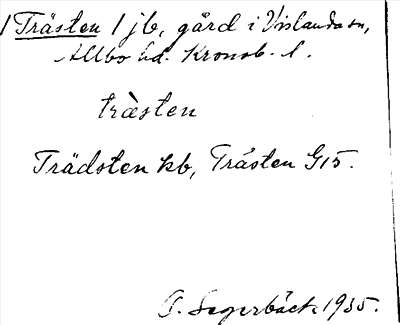 /Trästen / jb, gård i Vislanda sn,
Allbo hd. Kronob. l.
trästen
Trädsten kb, Trästen G15.
Segerbäck 1935.